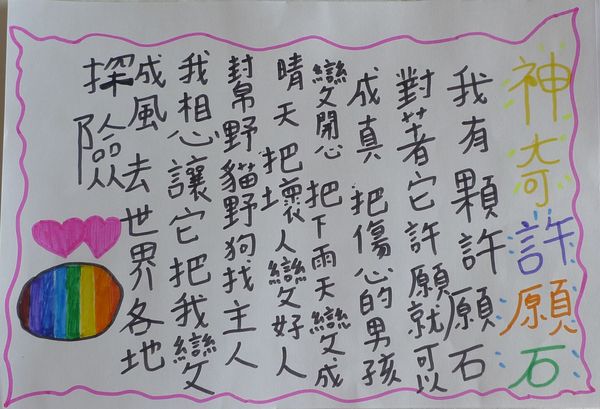 神奇許願石
我有顆許願石
對著它許願就可以
成真 把傷心的男孩
變開心 把下雨天變成
晴天 把壞人變好人
幫野貓野狗找主人
我想讓它把我變
成風去世界各地
探險